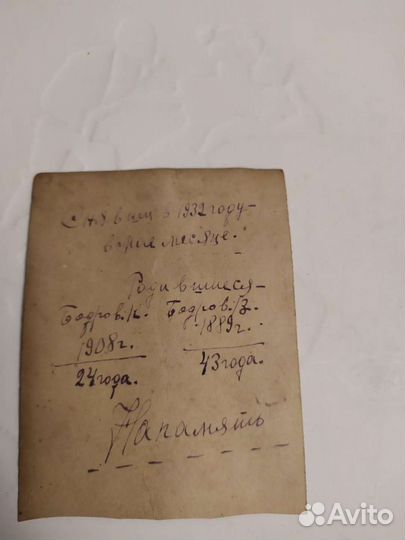 Снявши в 1932 году-
в мае месяце.
Родившиеся-
Бодров. К. Бодров. З.
1908 г. 1889 г.
24 года. 43 года.
На память
Avito